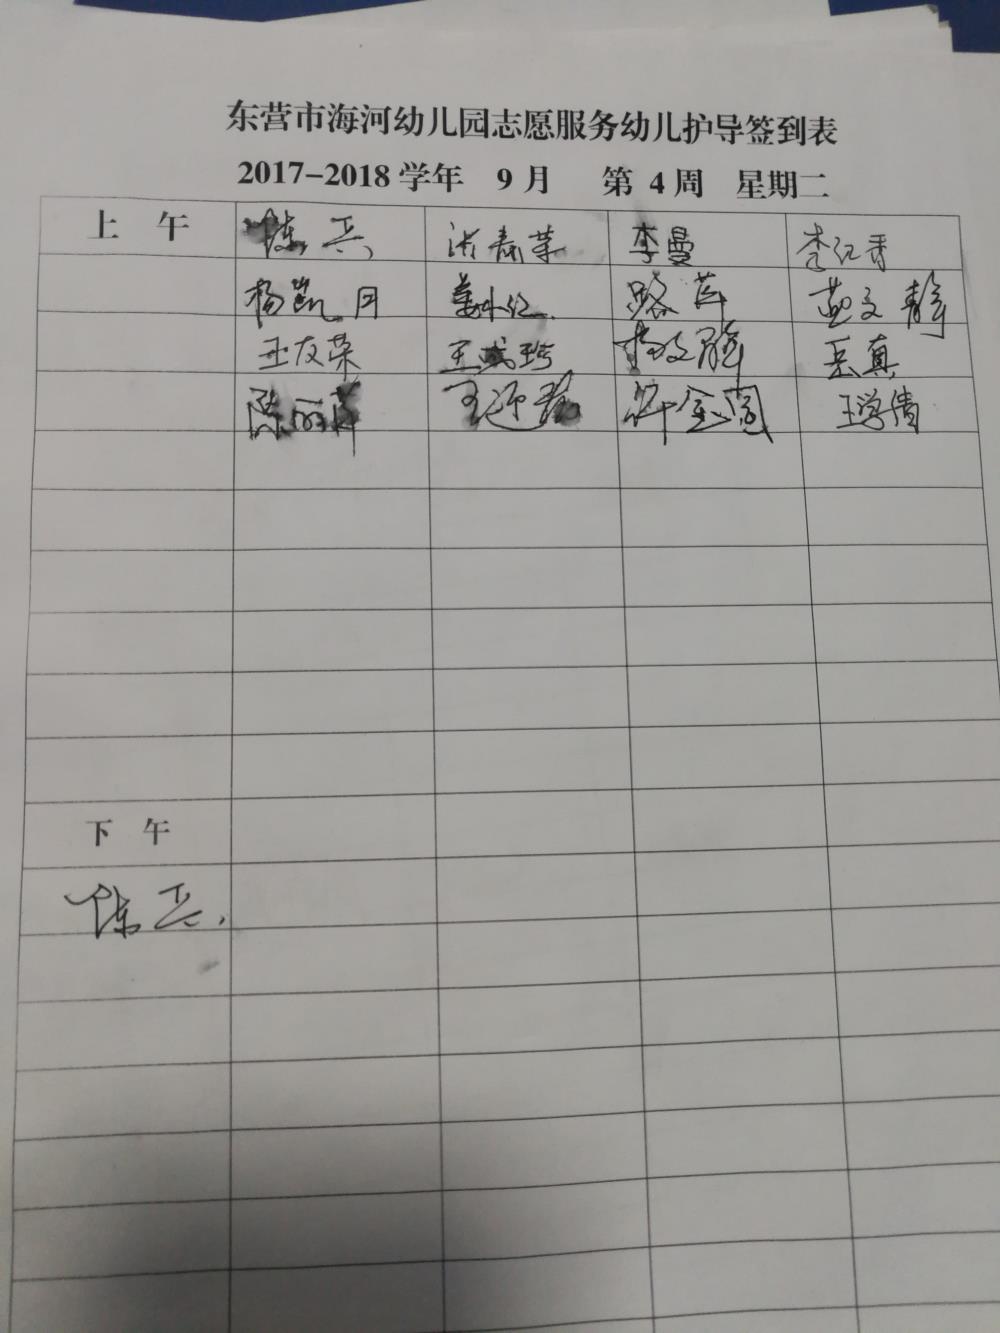 东营市海河幼儿园志愿服务幼儿护导签到表
2017-2018 学年 9 月 第 4 周 星期二
上 午 陈 兵 李曼 李红香
杨凯月 路萍 黄文静
王友荣 王成玲 杨文静 岳真
陈丽萍 王迎春 许金国 王学倩
下 午
陈 兵